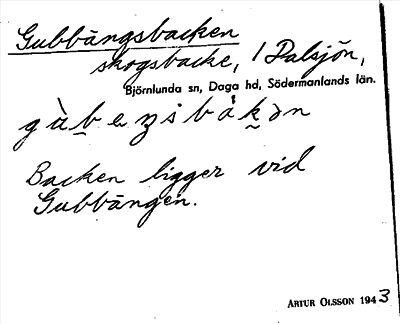 Gubbängsbacken
skogsbacke, / Dalsjön,
Björnlunda sn, Daga hd, Södermanlands län.
Backen ligger vid
Gubbängen.
ARTUR OLSSON 1943